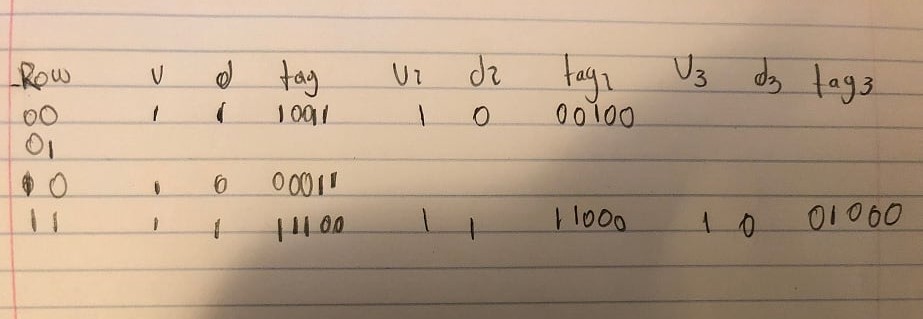 Row v d tag v2 d2 tag2 v3 d3 tag3
00 1 1 1 0 00100
01
10 1 0 00011
11 1 1 11100 1 1 11000 1 0 01000